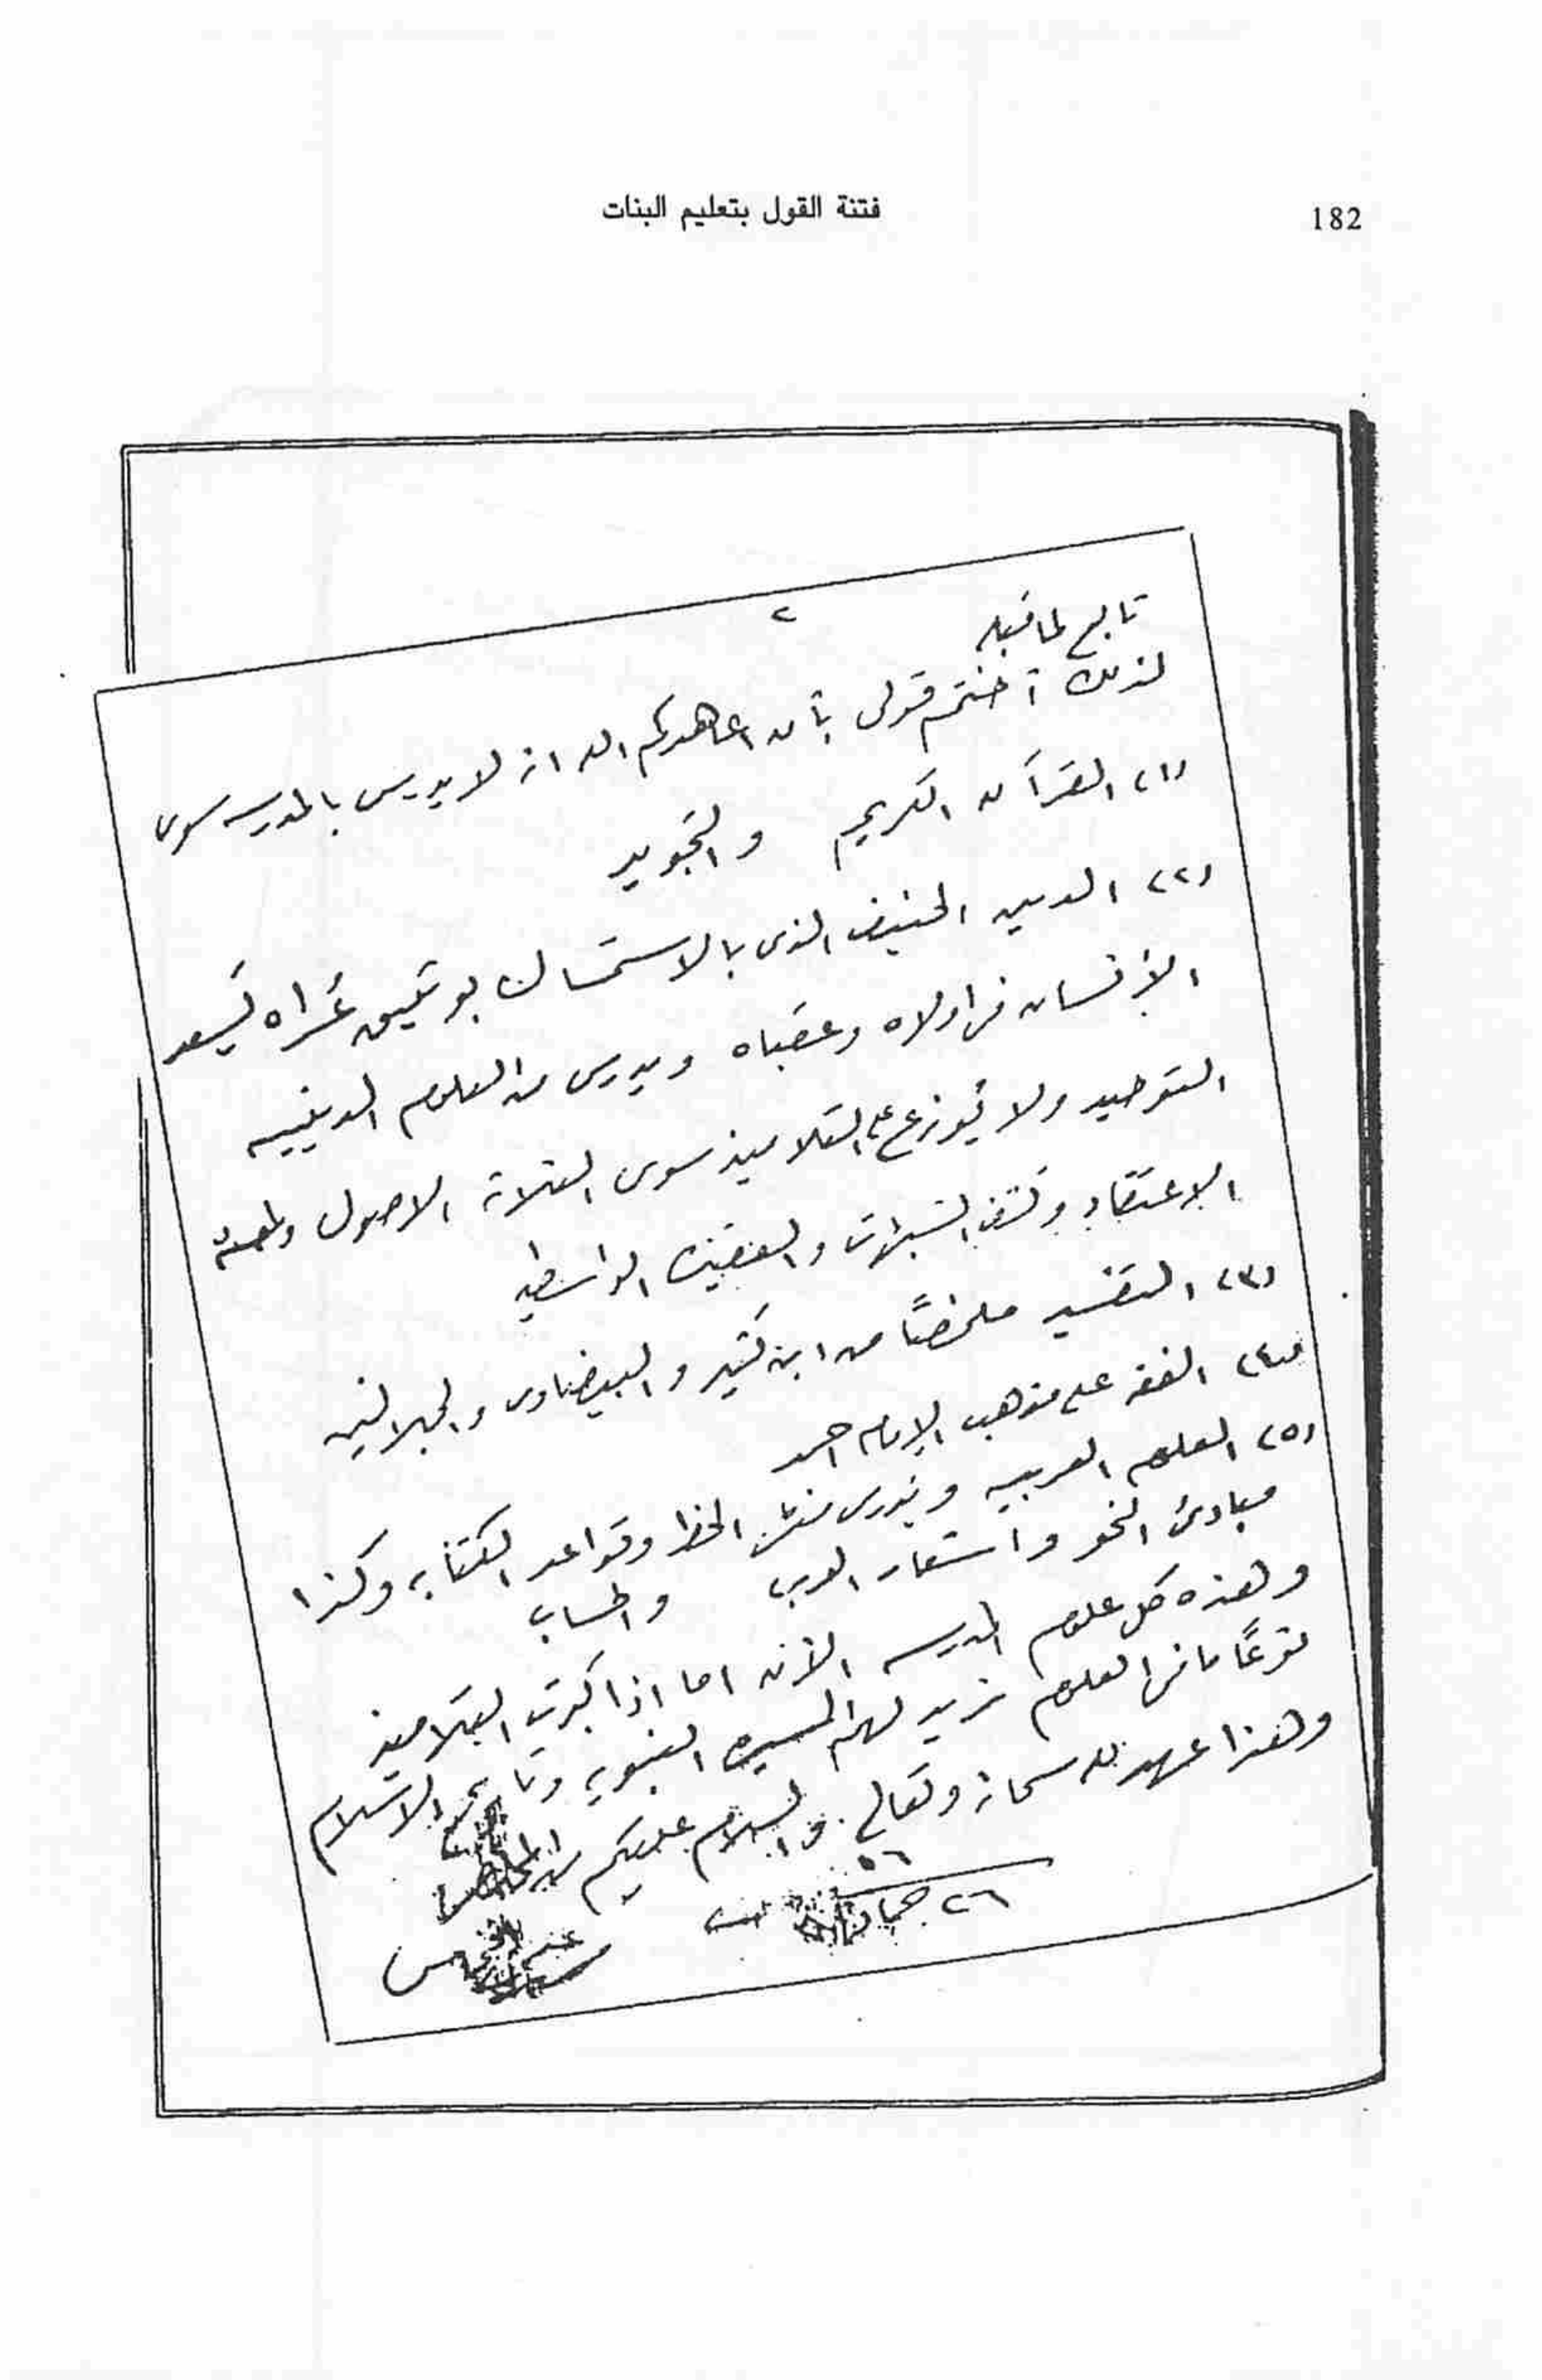 182
فتنة القول بتعليم البنات
٢
تابع لما قبله
لذلك أختم قولى بأن اعاهدكم الله انه لا يدرس بالمدرسه سوى
(١) القرآن الكريم والتجويد
(٢) الدين الحنيف الذى بالاستمساك بوثيق عُراه يَسعد
الأنسان فى اولاه وعقباه ويدرس من العلوم الدينيه
التوحيد ولا يُوزع على التلاميذ سوى الثلاثة الاصول ولمعة
الاعتقاد وكشف الشبهات والعقيدة الواسطيه
(٣) التفسير ملخصًا من ابن كثير والبيضاوى والجلالين
(٤) الفقه على مذهب الإمام احمد
(٥) العلوم العربيه ويدرس منها الخط وقواعد الكتابه وكذا
مبادئ النحو وأشعار العرب والحساب
وهذه كل علوم المدرسه الأن اما اذا كبرت التلاميذ
نوعًا ما فى العلوم نزيد لهم السيره النبويه وتاريخ الاسلام
وهذا عهد لله سبحانه وتعالى. والسلام عليكم من المخلص
٥٦
٢٦ جماد